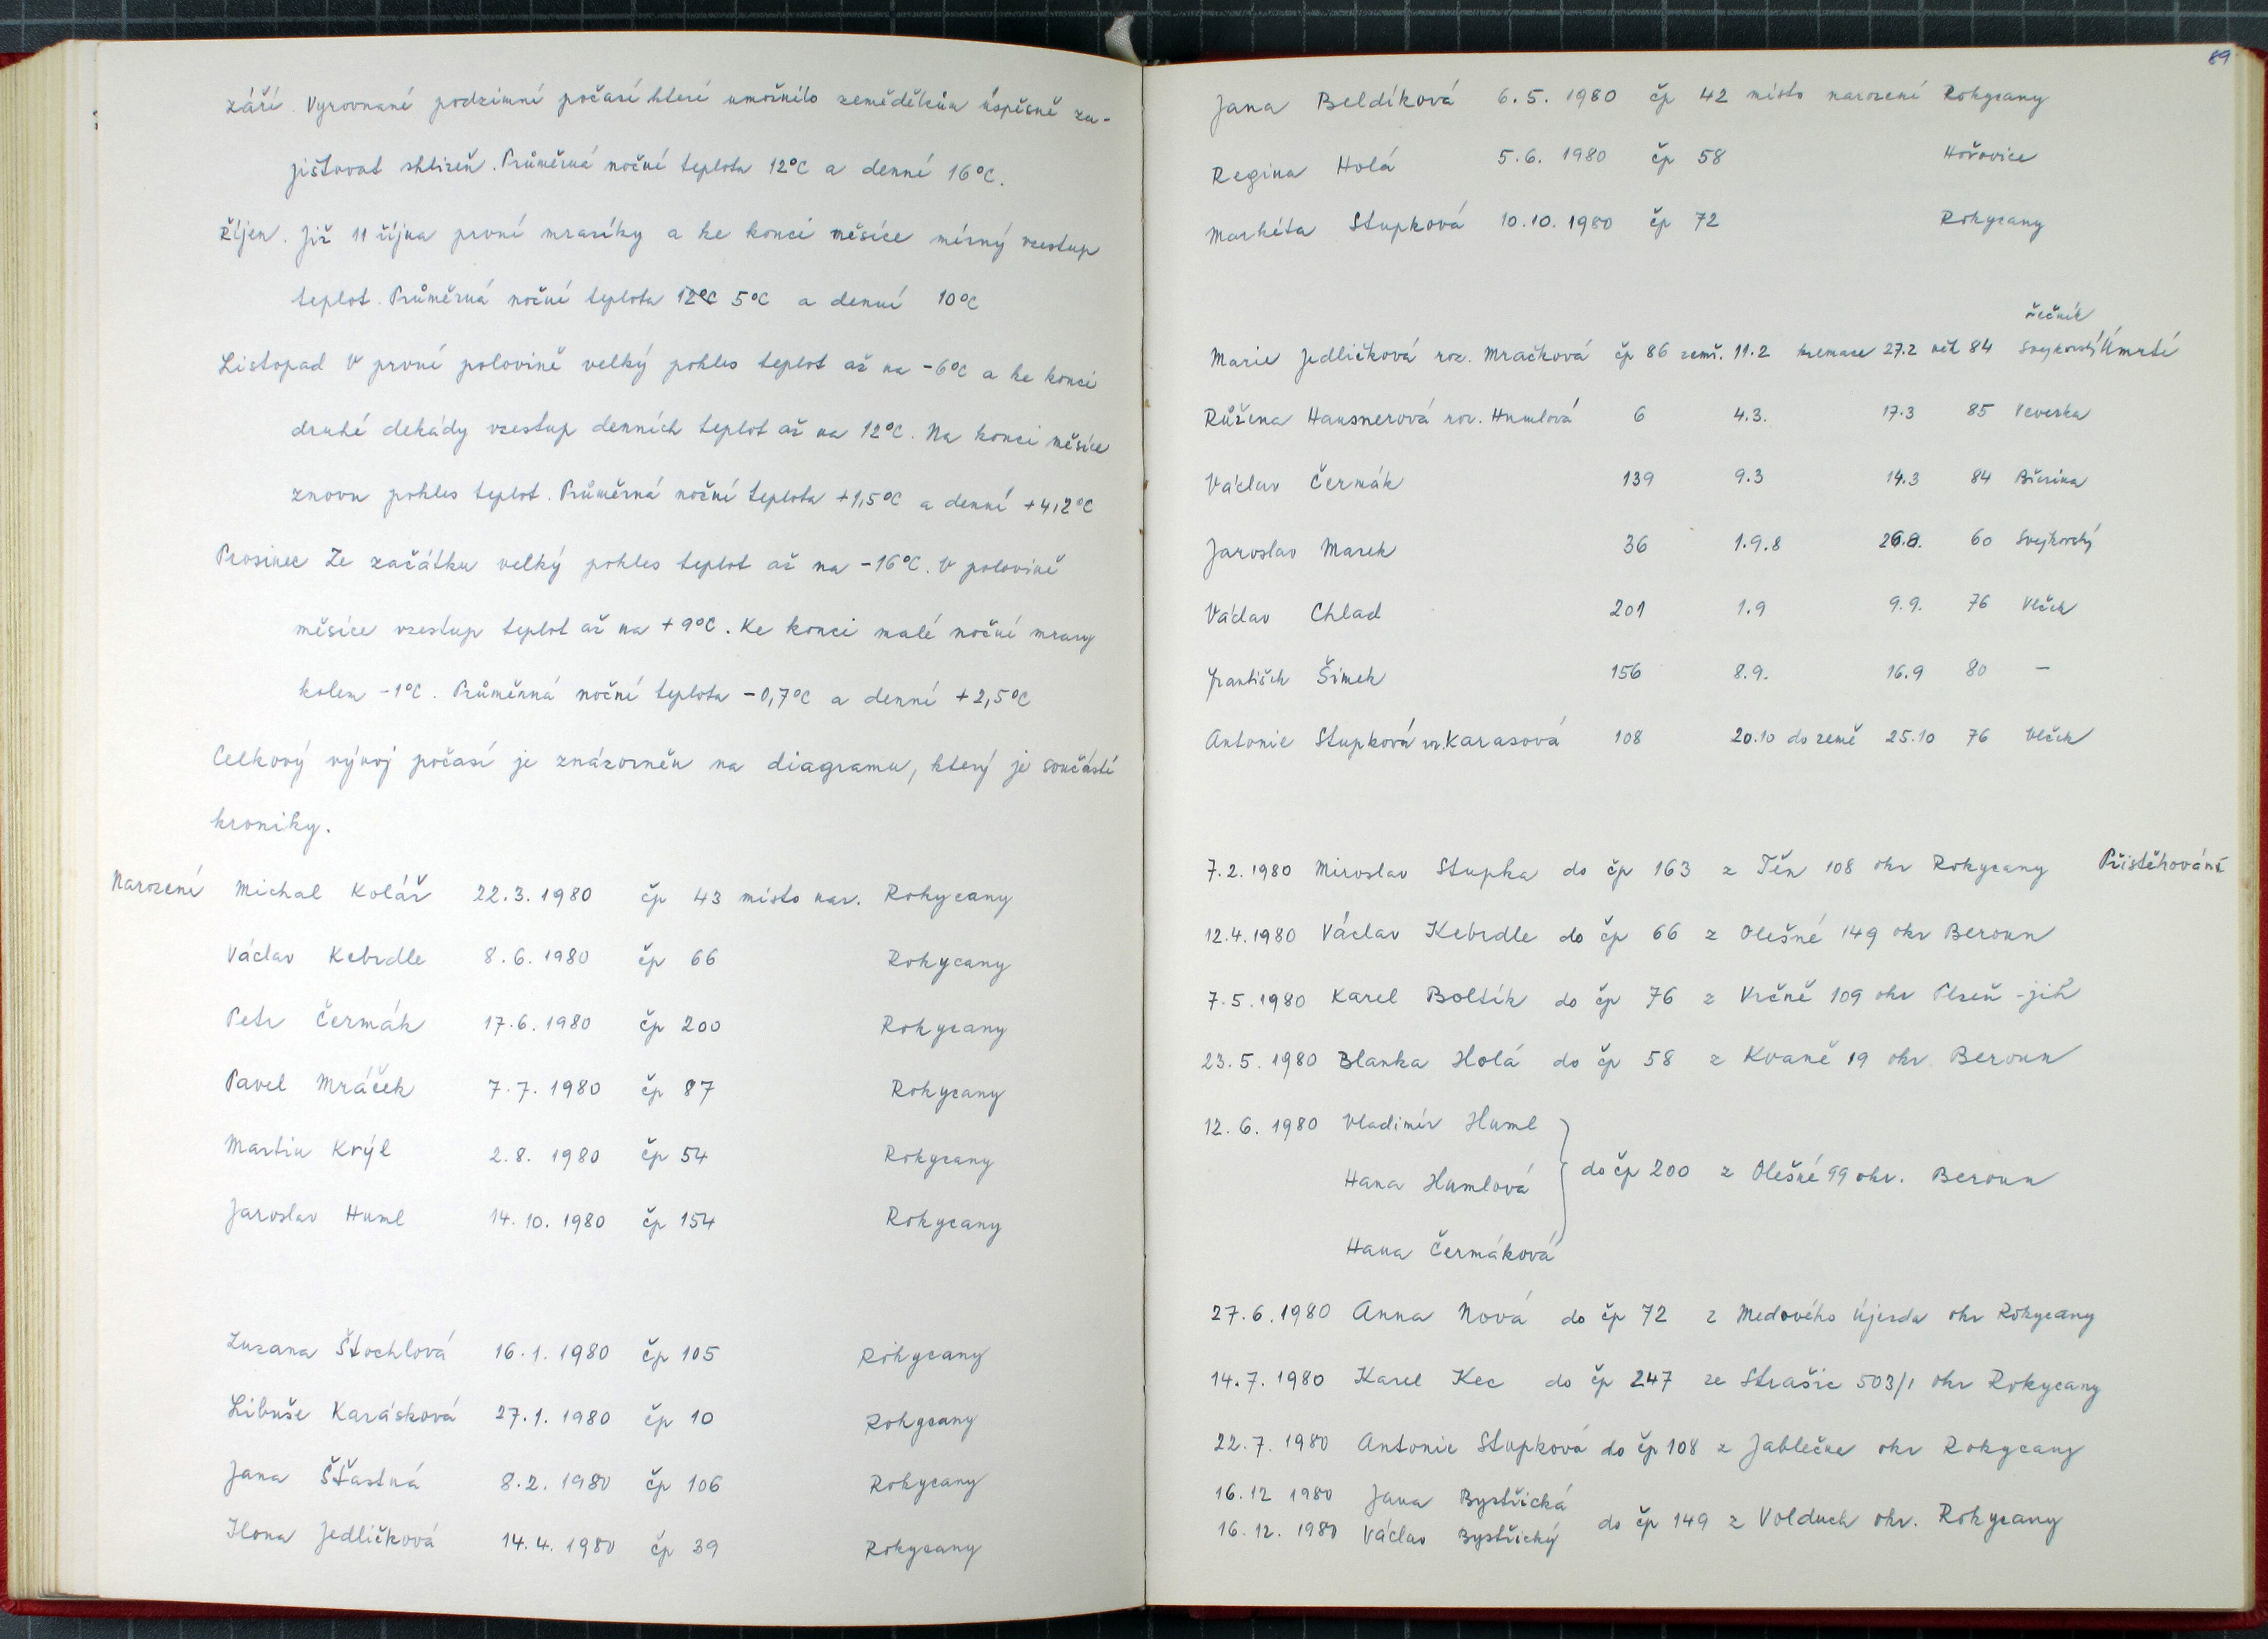 září. Vyrovnané podzimní počasí které umožnilo zemědělcům úspěšně za-
jišťovat sklizeň. Průměrná noční teplota 12°C a denní 16°C.
Říjen. Již 11 října první mrazíky a ke konci měsíce mírný vzestup
teplot. Průměrná noční teplota 12°C 5°C a denní 10°C
Listopad V první polovině velký pokles teplot až na -6°C a ke konci
druhé dekády vzestup denních teplot až na 12°C. Na konci měsíce
znovu pokles teplot. Průměrná noční teplota +1,5°C a denní +4,2°C
Prosinec Ze začátku velký pokles teplot až na -16°C. V polovině
měsíce vzestup teplot až na +9°C. Ke konci malé noční mrazy
kolem -1°C. Průměnná noční teplota -0,7°C a denní +2,5°C
Celkový vývoj počasí je znázorněn na diagramu, který je součástí
kroniky.
Narození Michal Kolář 22.3.1980 čp 43 místo nar. Rokycany
Václav Kebrdle 8.6.1980 čp 66 Rokycany
Petr Čermák 17.6.1980 čp 200 Rokycany
Pavel Mráček 7.7.1980 čp 87 Rokycany
Martin Krýl 2.8.1980 čp 54 Rokycany
Jaroslav Huml 14.10.1980 čp 154 Rokycany
Zuzana Štochlová 16.1.1980 čp 105 Rokycany
Libuše Karásková 27.1.1980 čp 10 Rokycany
Jana Šťastná 8.2.1980 čp 106 Rokycany
Ilona Jedličková 14.4.1980 čp 39 Rokycany
89
Jana Beldíková 6.5.1980 čp 42 místo narození Rokycany
Regina Holá 5.6.1980 čp 58 Hořovice
Markéta Stupková 10.10.1980 čp 72 Rokycany
řečník
Marie Jedličková roz. Mračková čp 86 zemř. 11.2 kremace 27.2 věk 84 Svejkovský Úmrtí
Růžena Hausnerová roz. Humlová 6 4.3. 17.3 85 Veverka
Václav Čermák 139 9.3 14.3 84 Březina
Jaroslav Marek 36 1.9.8 26.8. 60 Svejkovský
Václav Chlad 201 1.9 9.9. 76 Vlček
František Šimek 156 8.9. 16.9 80 –
Antonie Stupková roz. Karasová 108 20.10 do země 25.10 76 Vlček
7.2.1980 Miroslav Stupka do čp 163 z Těn 108 okr Rokycany Přistěhování
12.4.1980 Václav Kebrdle do čp 66 z Olešné 149 okr Beroun
7.5.1980 Karel Boltík do čp 76 z Vrčně 109 okr Plzeň-jih
23.5.1980 Blanka Holá do čp 58 z Kvaně 19 okr. Beroun
12.6.1980 Vladimír Huml
Hana Humlová do čp 200 z Olešné 99 okr. Beroun
Hana Čermáková
27.6.1980 Anna Nová do čp 72 z Medového Újezda okr Rokycany
14.7.1980 Karel Kec do čp 247 ze Strašic 503/1 okr Rokycany
22.7.1980 Antonie Stupková do čp 108 z Jablečna okr Rokycany
16.12 1980 Jana Bystřická
16.12.1980 Václav Bystřický do čp 149 z Volduch okr. Rokycany